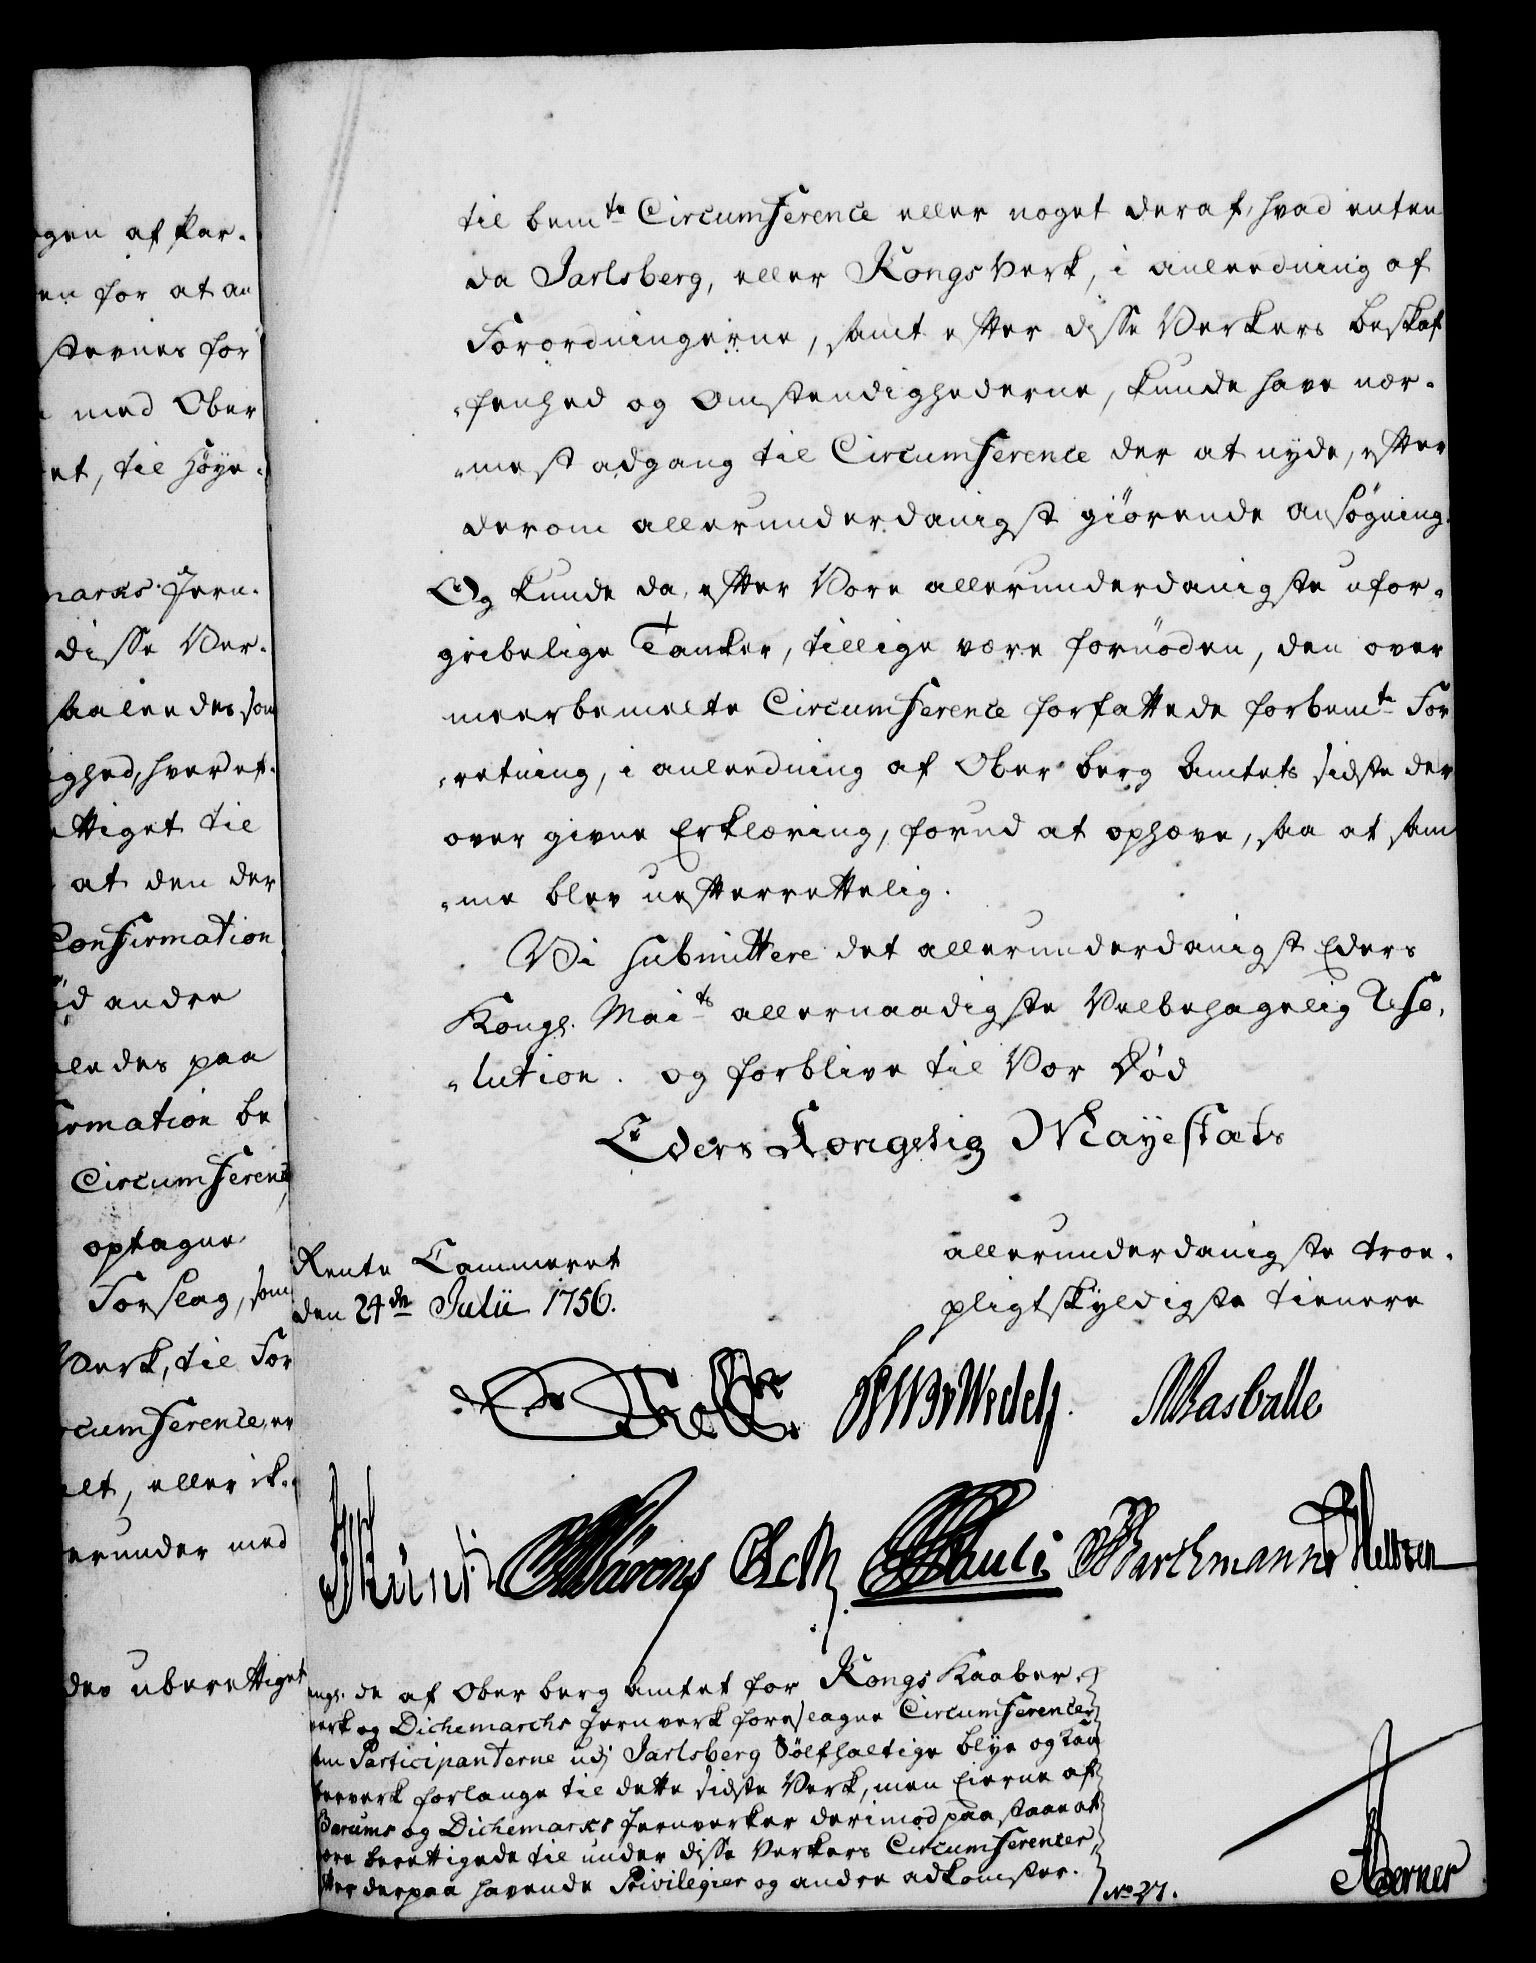 gen af Par-
en for at an
stevnes for
med Ober
et, til Høye-
marks Jern-
disse Ver-
saaledes som
ighed, hvordet-
ettiget til
at den der
Confirmation
andre
ledes paa
irmation be
Circumference
optagne
Forslag, som
Verk, til For
rcumference, er
elt, eller ik-
erunder med
des uberettiget
til bemte Circumference eller noget deraf, hvad enten
da Jarlsberg, eller Kongs Verk, i anleedning af
Forordningerne, samt efter disse Verkers beskaf
-fenhed og Omstendighederne, kunde have nær-
-mest adgang til Circumference der at nyde, efter
derom allerunderdanigst giörende ansögning.
Og kunde da, efter Vore allerunderdanigste ufor-
gribelige Tanker, tillige være fornöden, den over
meerbemelte Circumference forfattede forbemte For
-retning, i anleedning af Ober berg Amtets sidste der
over givne Erklæring, forud at ophæve, saa at sam
-me blev uefterrettelig.
Vi submittere det allerunderdanigst Eders
Kongl. Maits allernaadigste Velbehagelig Reso-
-lution. og forblive til Vor Död
Eders Kongelig Mayestæts
allerunderdanigste troe-
pligtskyldigste tienere
Rente Cammeret
den 24de Julii 1756.
Wedell. Rasballe
Schulti Barthmann Hellzen
de af Ober berg Amtet for Kongs Kaaber-
verk og Dichemarchs Jernverk foreslagne Circumferencer
Participanterne udj Jarlsberg Sölfholtige blye og Kaa
berverk forlange til dette sidste Verk, men Eierne af
Bærums og Dichemarks Jernverker derimod paastaae at
være berettigede til under disse Verkers Circumferencer,
efter derpaa havende Privilegier og andre adkomster.
No 27.
Berner